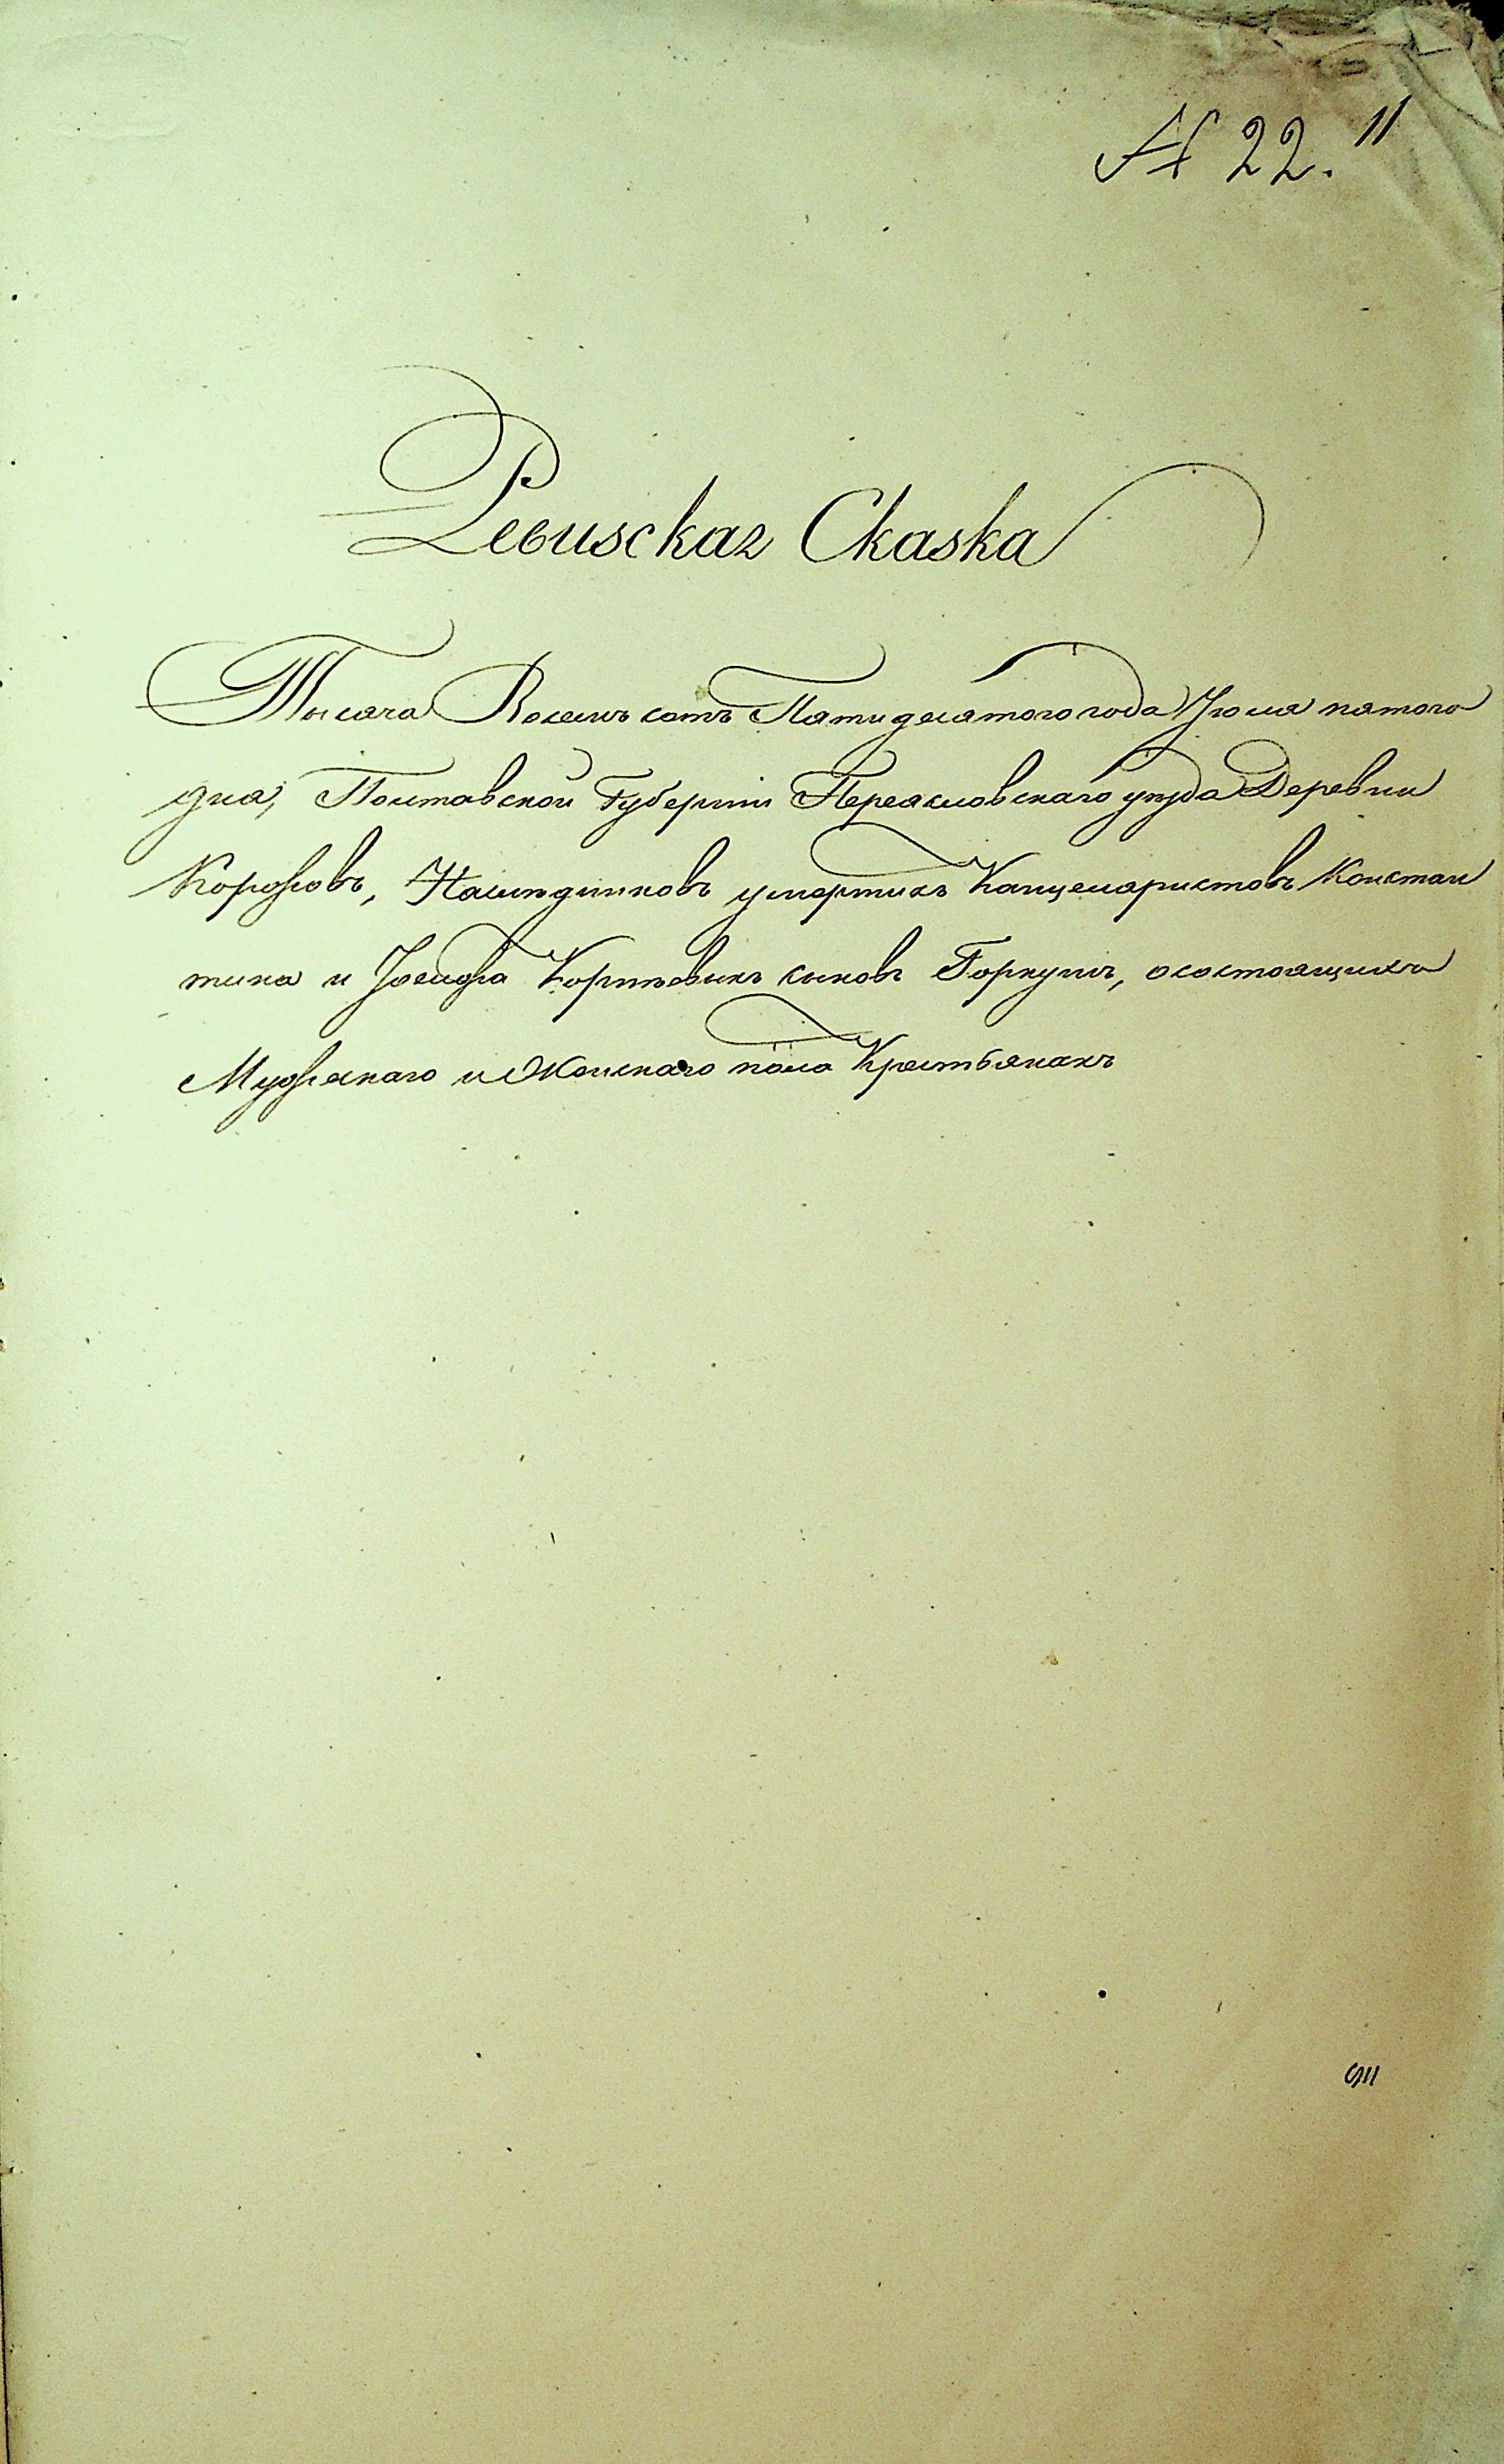 № 22. "
Ревизская Сказка
Тысяча Восемь сотъ Пятидесятого года Июля пятого
дня, Полтавской Губерніи Переясловскаго уѣзда Деревни
Коржовъ, Наслѣдниковъ умертихъ Канцеляристовъ Констан
тина и Іосифа Корнѣевыхъ сыновъ Горкушъ, осостоящихъ
Мужескаго и Женскаго пола Крестьянахъ